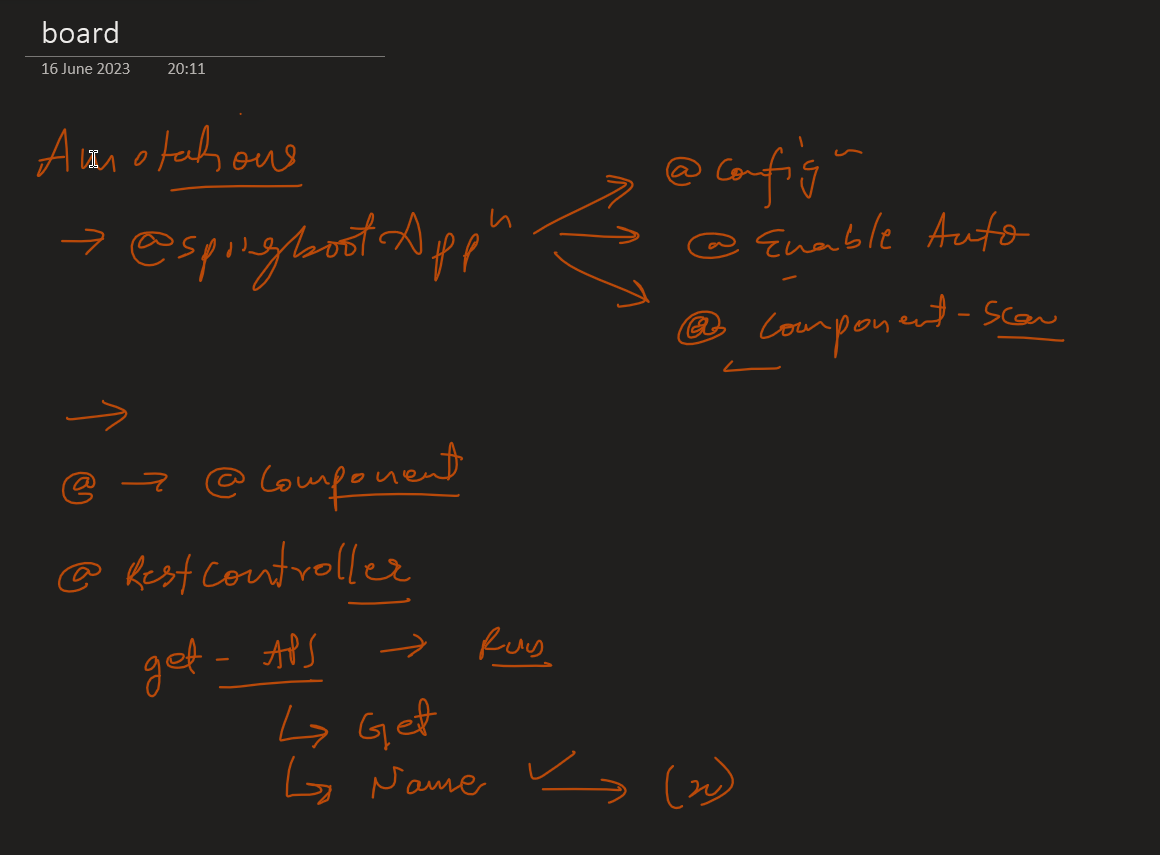 board
16 June 2023 20:11
Annotations
→ @springbootAppⁿ
@configⁿ
@Enable Auto
@ Component-Scan
→
@ → @Component
@ RestController
get - API → Run
↳ Get
↳ Name ✓ → (x)